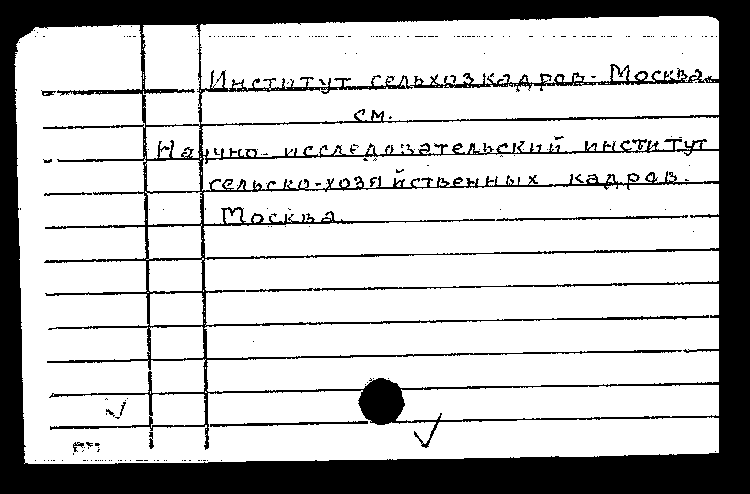 Институт сельхозкадров. Москва.
см.
Научно-исследовательский институт
сельско-хозяйственных кадров.
Москва.